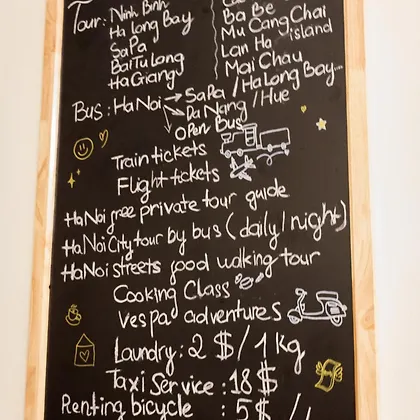 Tour: Ninh Binh
Ha Long Bay
SaPa
Bai Tu Long
Ha Giang
Ba Be
Mu Cang Chai
Lan Ha island
Mai Chau
/ Ha Long Bay...
Bus: HaNoi → SaPa
→ Da Nang / Hue
→ Open Bus
Train tickets
Flight tickets
HaNoi free private tour guide
HaNoi City tour by bus (daily/night)
HaNoi streets food walking tour
Cooking Class
Vespa adventures
Laundry: 2 $/1kg
Taxi Service: 18 $
Renting bicycle : 5 $/